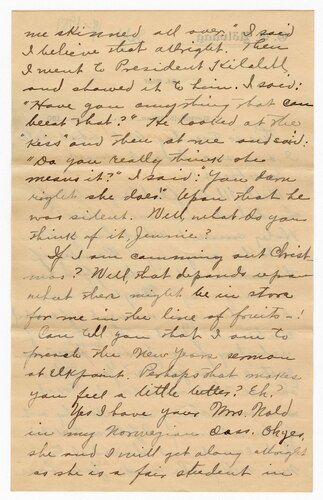 me skinned all over." I said
I believe that allright. Then
I went to President Kildahl
and showed it to him. I said:
"Have you anything that can
beat that?" He looked at the
"kiss" and then at me and said:
"Do you really think she
means it?" I said: "You darn
right she does." Upon that he
was silent. Well what do you
think of it, Jennie?
If I am comming out Christ
mas? Well, that depends upon
what ther might be in store
for me in the line of fruits -!
Can tell you that I am to
preach the New Years sermon
at Elkpoint. Perhaps that makes
you feel a little better? Eh?
Yes I have your Mrs. Nold
in my Norwegian class. Oh yes,
she and I will get along allright
as she is a fair student in